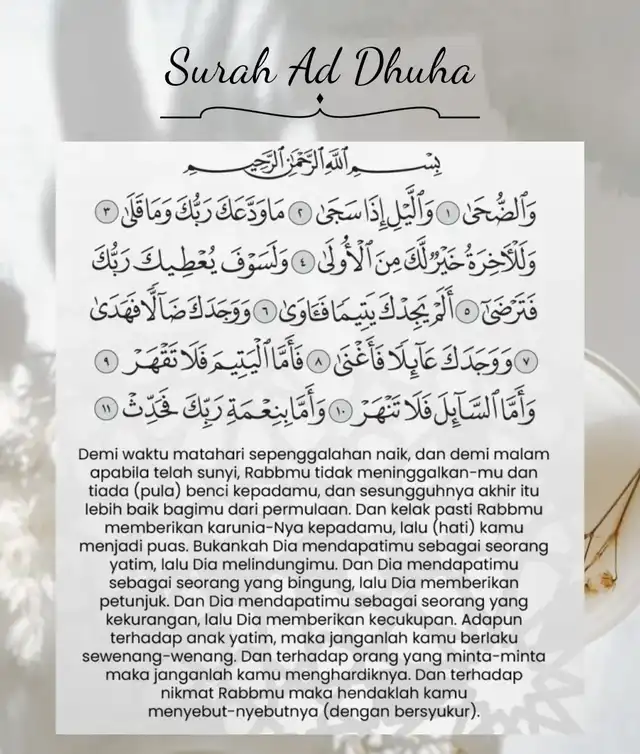 Surah Ad Dhuha
بِسْمِ اللَّهِ الرَّحْمَٰنِ الرَّحِيمِ
وَالضُّحَىٰ ١ وَالَّيْلِ إِذَا سَجَىٰ ٢ مَا وَدَّعَكَ رَبُّكَ وَمَا قَلَىٰ ٣
وَلَلْآخِرَةُ خَيْرٌ لَّكَ مِنَ الْأُولَىٰ ٤ وَلَسَوْفَ يُعْطِيكَ رَبُّكَ
فَتَرْضَىٰ ٥ أَلَمْ يَجِدْكَ يَتِيمًا فَـَٔاوَىٰ ٦ وَوَجَدَكَ ضَآلًّا فَهَدَىٰ
٧ وَوَجَدَكَ عَآئِلًا فَأَغْنَىٰ ٨ فَأَمَّا الْيَتِيمَ فَلَا تَقْهَرْ ٩
وَأَمَّا السَّآئِلَ فَلَا تَنْهَرْ ١٠ وَأَمَّا بِنِعْمَةِ رَبِّكَ فَحَدِّثْ ١١
Demi waktu matahari sepenggalahan naik, dan demi malam
apabila telah sunyi, Rabbmu tidak meninggalkan-mu dan
tiada (pula) benci kepadamu, dan sesungguhnya akhir itu
lebih baik bagimu dari permulaan. Dan kelak pasti Rabbmu
memberikan karunia-Nya kepadamu, lalu (hati) kamu
menjadi puas. Bukankah Dia mendapatimu sebagai seorang
yatim, lalu Dia melindungimu. Dan Dia mendapatimu
sebagai seorang yang bingung, lalu Dia memberikan
petunjuk. Dan Dia mendapatimu sebagai seorang yang
kekurangan, lalu Dia memberikan kecukupan. Adapun
terhadap anak yatim, maka janganlah kamu berlaku
sewenang-wenang. Dan terhadap orang yang minta-minta
maka janganlah kamu menghardiknya. Dan terhadap
nikmat Rabbmu maka hendaklah kamu
menyebut-nyebutnya (dengan bersyukur).